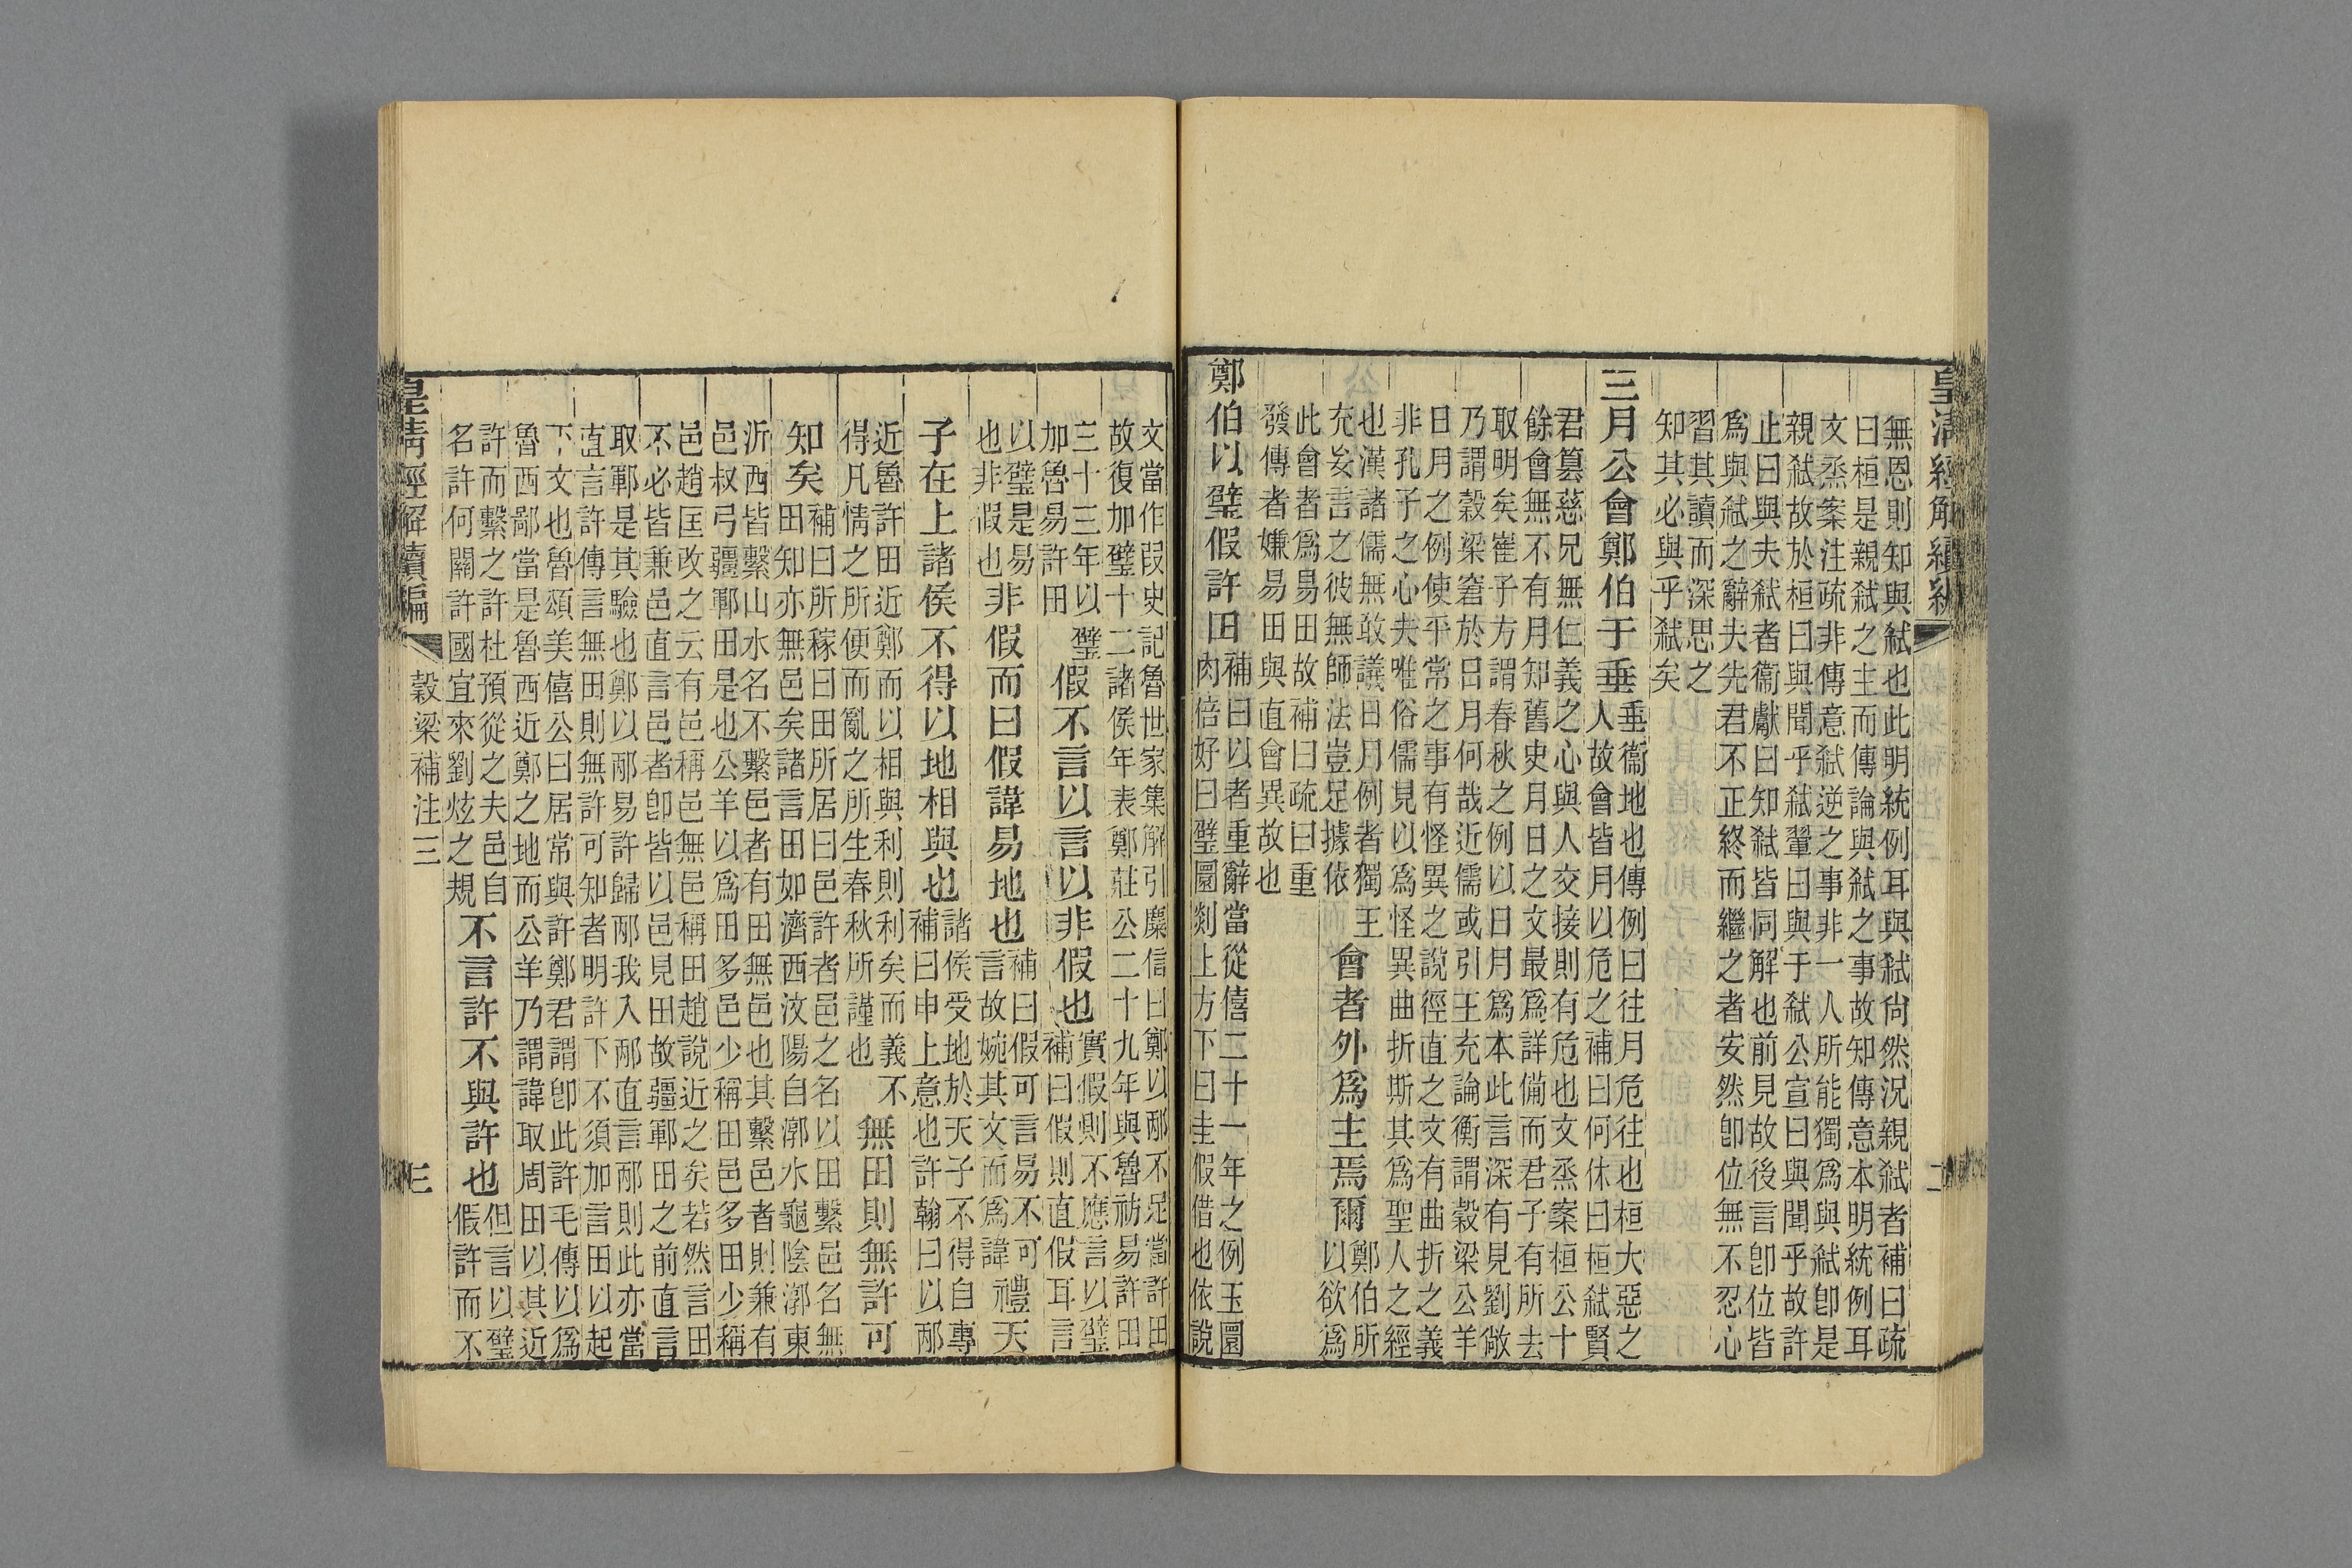 皇清經解續編 二
無恩則知與弑也此明統例耳與弑尙然況親弑者補曰疏
曰桓是親弑之主而傳論與弑之事故知傳意本明統例耳
文烝案注疏非傳意弑逆之事非一人所能獨爲與弑卽是
親弑故於桓曰與聞乎弑翬曰與于弑公宣曰與聞乎故許
止曰與夫弑者衞獻曰知弑皆同解也前見故後言卽位皆
爲與弑之辭夫先君不正終而繼之者安然卽位無不忍心
習其讀而深思之
知其必與乎弑矣
三月公會鄭伯于垂
垂衞地也傳例曰往月危往也桓大惡之
人故會皆月以危之補曰何休曰桓弑賢
君篡慈兄無仁義之心與人交接則有危也文烝案桓公十
餘會無不有月知舊史月日之文最爲詳備而君子有所去
取明矣崔子方謂春秋之例以日月爲本此言深有見劉敞
乃謂穀梁窘於日月何哉近儒或引王充論衡謂穀梁公羊
日月之例使平常之事有怪異之說徑直之文有曲折之義
非孔子之心夫唯俗儒見以爲怪異曲折斯其爲聖人之經
也漢諸儒無敢議日月例者獨王
充妄言之彼無師法豈足據依
會者外爲主焉爾
鄭伯所
以欲爲
此會者爲易田故補曰疏曰重
發傳者嫌易田與直會異故也
鄭伯以璧假許田
補曰以者重辭當從僖二十一年之例玉圜
肉倍好曰璧圜剡上方下曰圭假借也依說
文當作叚史記魯世家集解引麋信曰鄭以邴不足當許田
故復加璧十二諸侯年表鄭莊公二十九年與魯祊易許田
三十三年以璧
加魯易許田
假不言以言以非假也
實假則不應言以璧
補曰假則直假耳言
以璧是易
也非假也
非假而曰假諱易地也
補曰假可言易不可
言故婉其文而爲諱
禮天
子在上諸侯不得以地相與也
諸侯受地於天子不得自專
補曰申上意也許翰曰以邴
近魯許田近鄭而以相與利則利矣而義不
得凡情之所便而亂之所生春秋所謹也
無田則無許可
知矣
補曰所稼曰田所居曰邑許者邑之名以田繫邑名無
田知亦無邑矣諸言田如濟西汶陽自漷水龜陰漷東
沂西皆繫山水名不繫邑者有田無邑也其繫邑者則兼有
邑叔弓疆鄆田是也公羊以爲田多邑少稱田邑多田少稱
邑趙匡改之云有邑稱邑無邑稱田趙說近之矣若然言田
不必皆兼邑直言邑者卽皆以邑見田故疆鄆田之前直言
取鄆是其驗也鄭以邴易許歸邴我入邴直言邴則此亦當
直言許傳言無田則無許可知者明許下不須加言田以起
下文也魯頌美僖公曰居常與許鄭君謂卽此許毛傳以爲
魯西鄙當是魯西近鄭之地而公羊乃謂諱取周田以其近
許而繫之許杜預從之夫邑自
名許何關許國宜來劉炫之規
不言許不與許也
但言以璧
假許而不
皇清經解續編 穀梁補注三 三